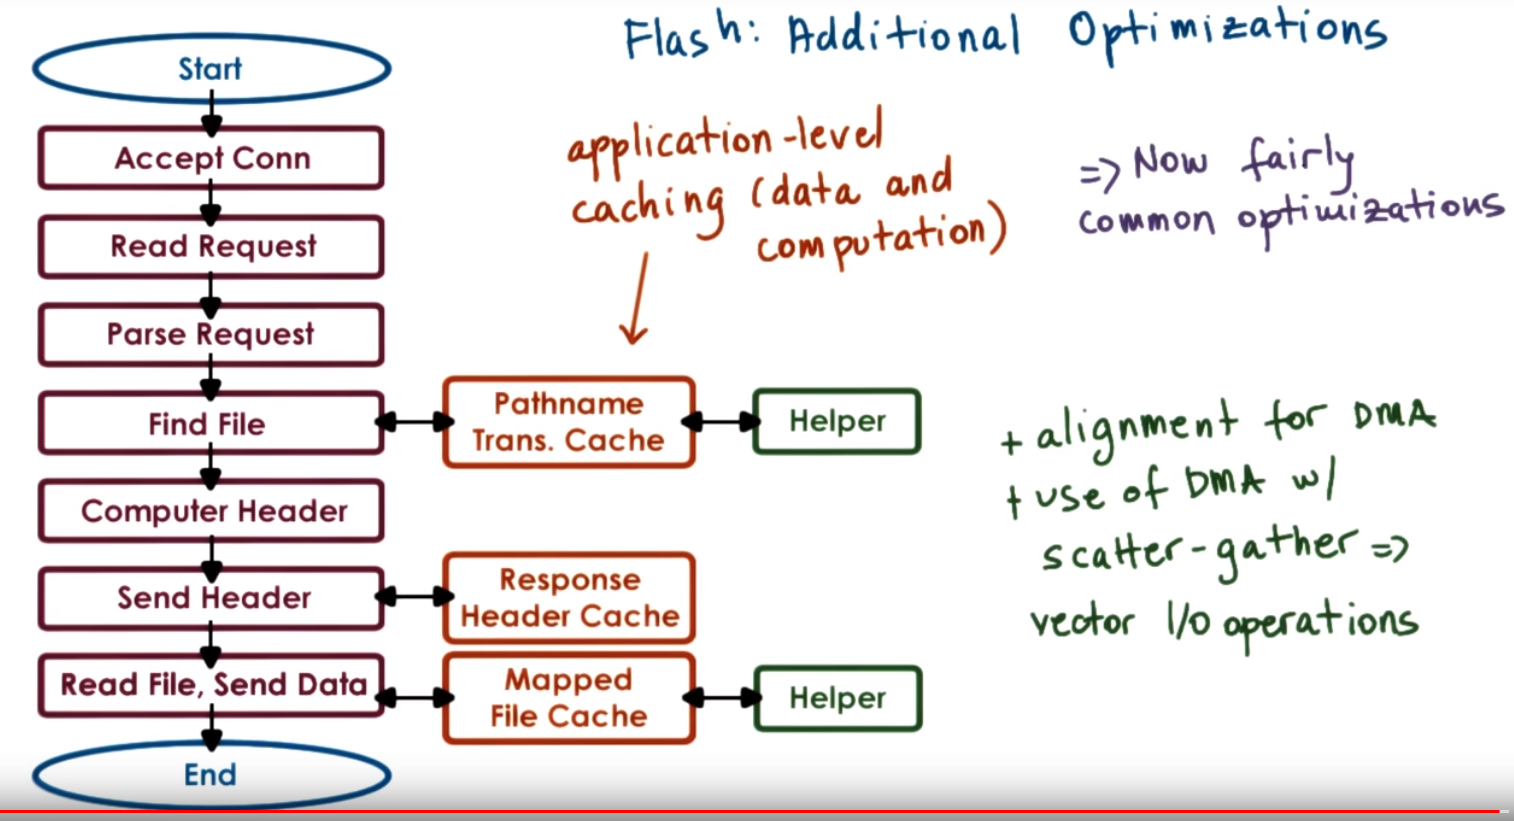 Flash: Additional Optimizations
Start
Accept Conn
Read Request
Parse Request
Find File
Computer Header
Send Header
Read File, Send Data
End
application-level
caching (data and
computation)
=> Now fairly
common optimizations
Pathname
Trans. Cache
Helper
Response
Header Cache
Mapped
File Cache
Helper
+ alignment for DMA
+ use of DMA w/
scatter-gather =>
vector I/O operations